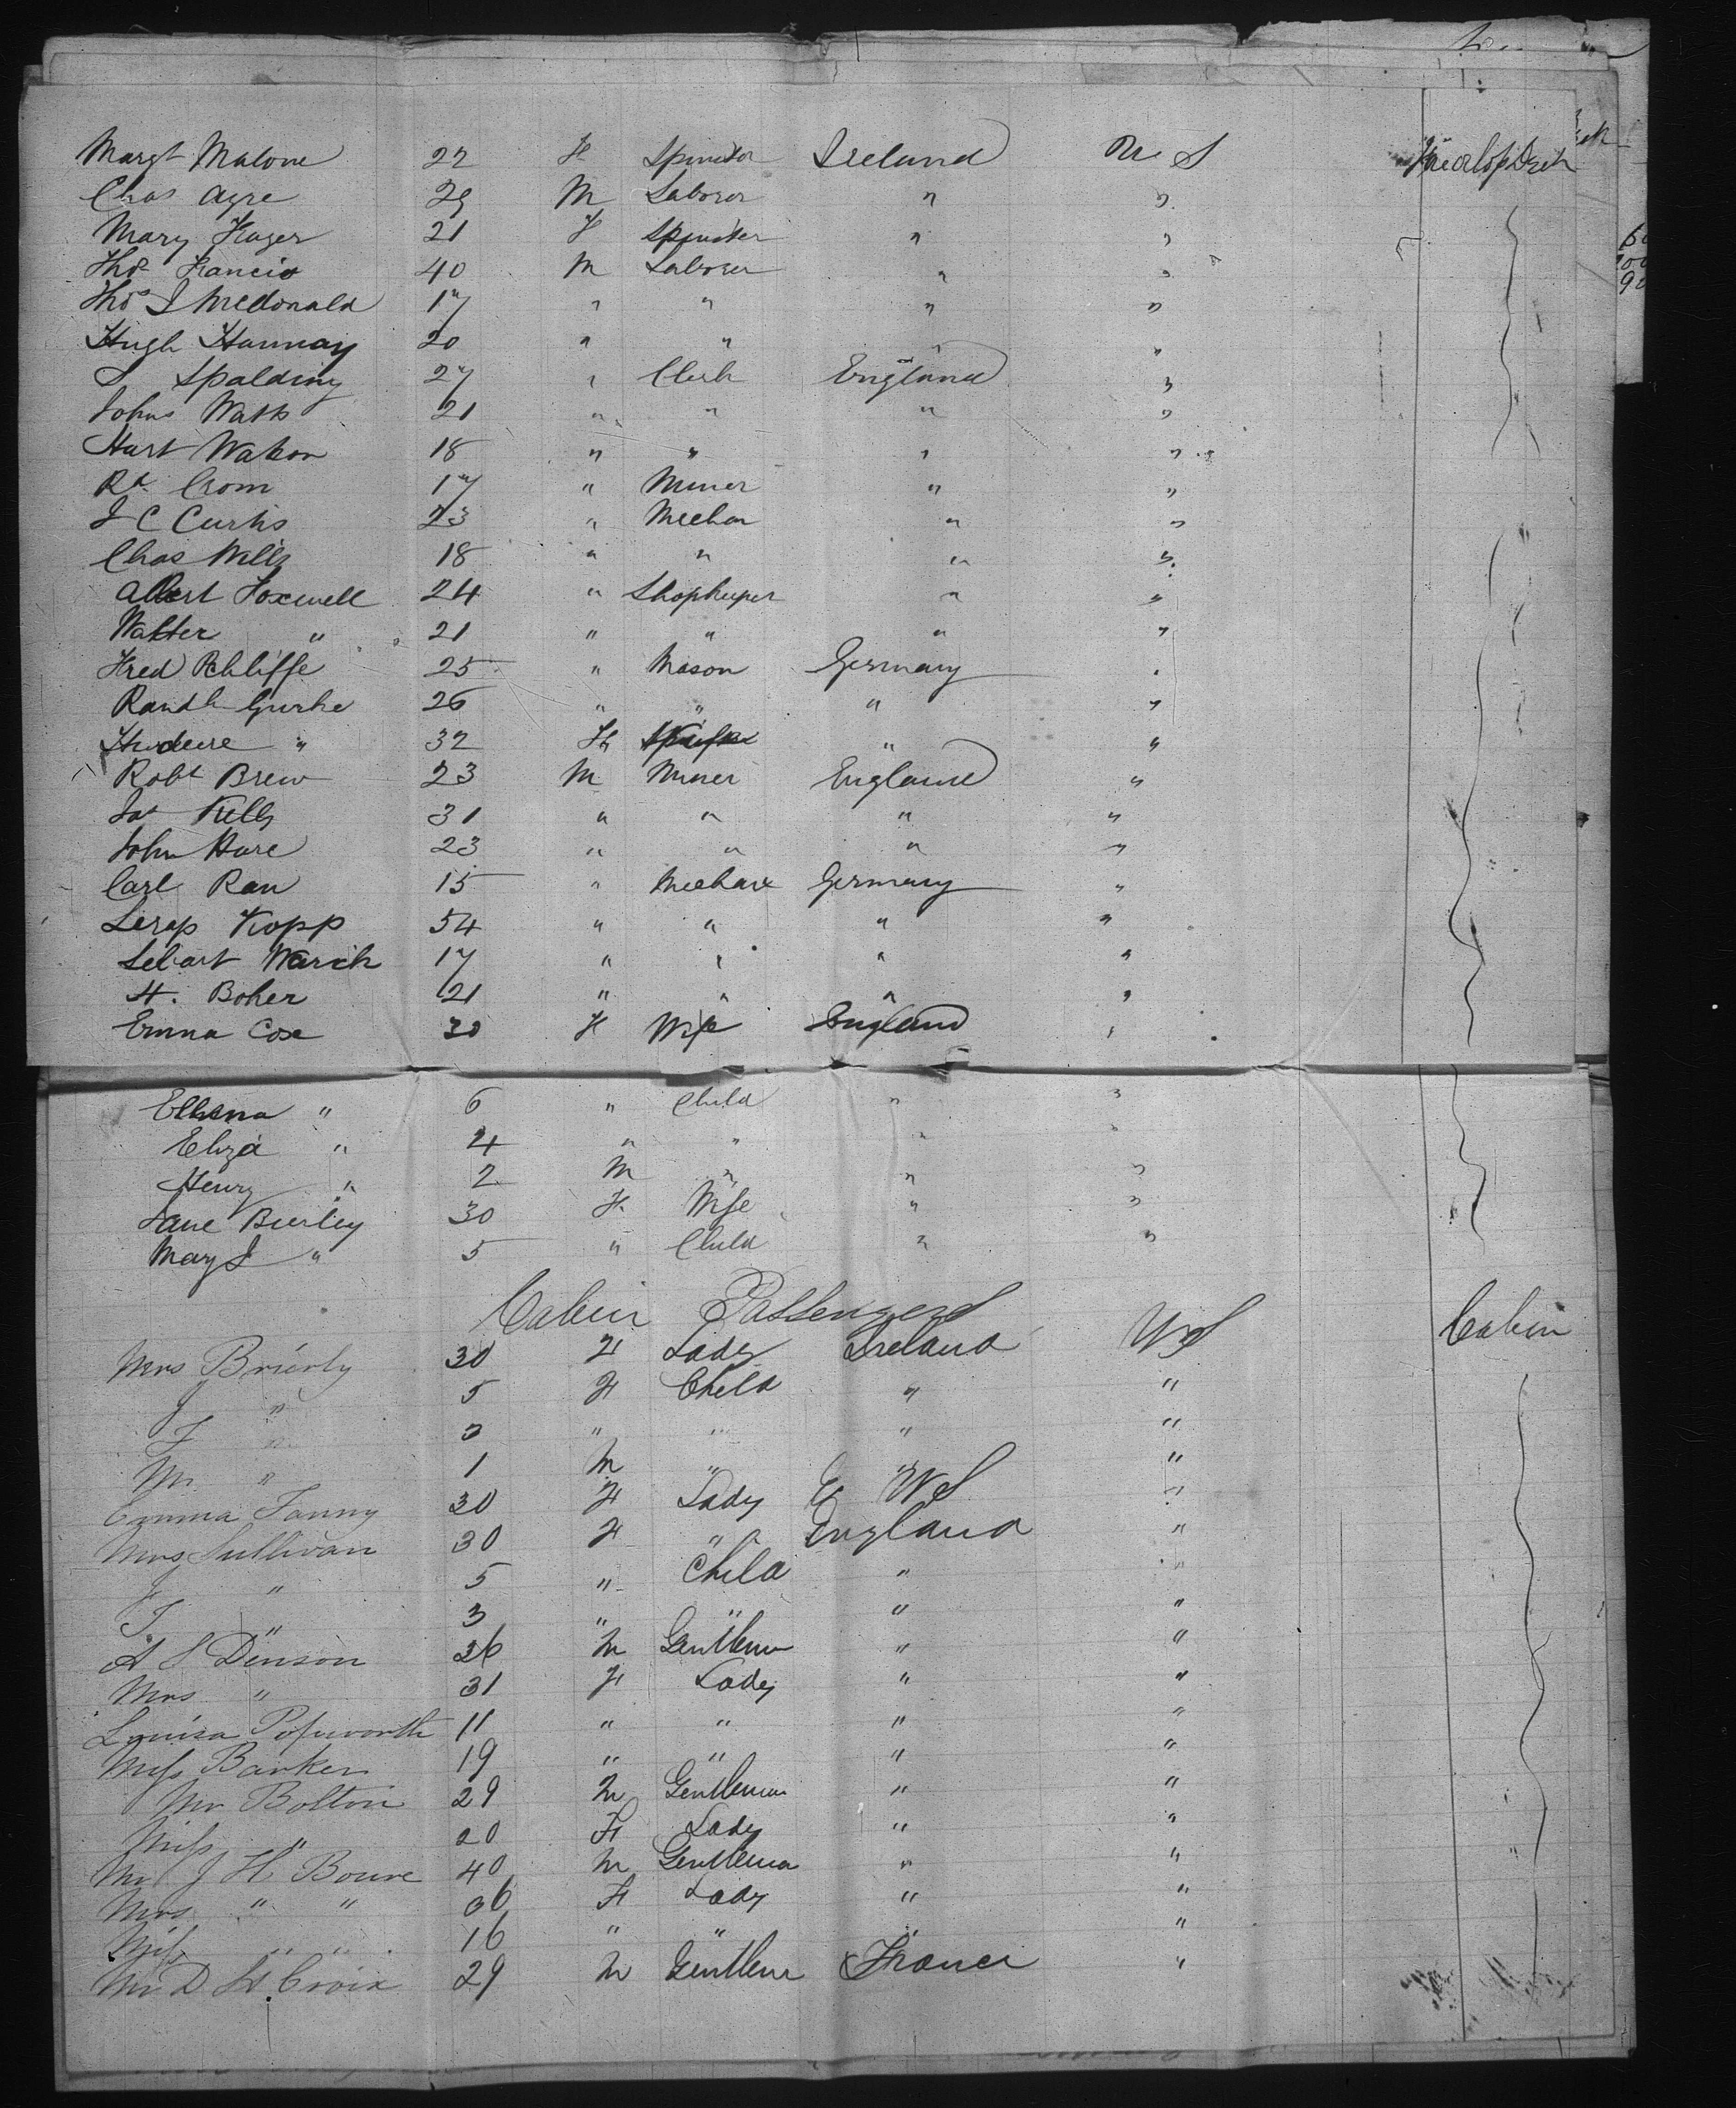 Margt Malone 22 F Spinster Ireland U S
Chas Agre 29 M Laborer " "
Mary Hager 21 F Spinster " "
Thos Francis 40 M Laborer " "
Thos J McDonald 17 " " " "
Hugh Hannay 20 " " " "
S Spalding 27 " Clerk England "
Johns Watts 21 " " " "
Hart Watson 18 " " " "
Rd Crom 17 " Miner " "
J C Curtis 23 " Mechan " "
Chas Wells 18 " " " "
Albert Foxwell 24 " Shopkeeper " "
Walter " 21 " " " "
Fred 25 " Mason Germany "
Randh Gurke 26 " " " "
" 32 F " "
Robt Brew 23 M Miner England "
Jas Kelly 31 " " " "
John Hare 23 " " " "
Carl Rau 15 " Mechan Germany "
Kopp 54 " " " "
Warich 17 " " " "
H. Boker 21 " " " "
Emma Cox 30 F Wife England "
" 6 " Child " "
Eliza " 4 " " " "
Henry " 2 M " " "
Jane Burley 30 F Wife " "
Mary J " 5 " Child " "
Cabin Passengers
Mrs Brierly 30 F Lady Ireland US Cabin
J " 5 F Child " "
F " 3 " " " "
M " 1 M " " "
Emma Fanny 30 F Lady US "
Mrs Sullivan 30 F " England "
J " 5 " Child " "
T " 3 " " " "
A S Denson 26 M Gentleman " "
Mrs " 31 F Lady " "
Louisa Popworth 11 " " " "
Miss Barker 19 " " " "
Mr Bolton 29 M Gentleman " "
Miss " 20 F Lady " "
Mr J H Boure 40 M Gentleman " "
Mrs " " 36 F Lady " "
Miss " " 16 " " " "
Mr D St. Croix 29 M Gentlemn France "